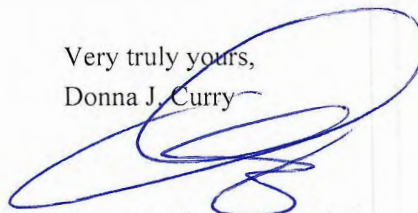 Very truly yours,
Donna J. Curry